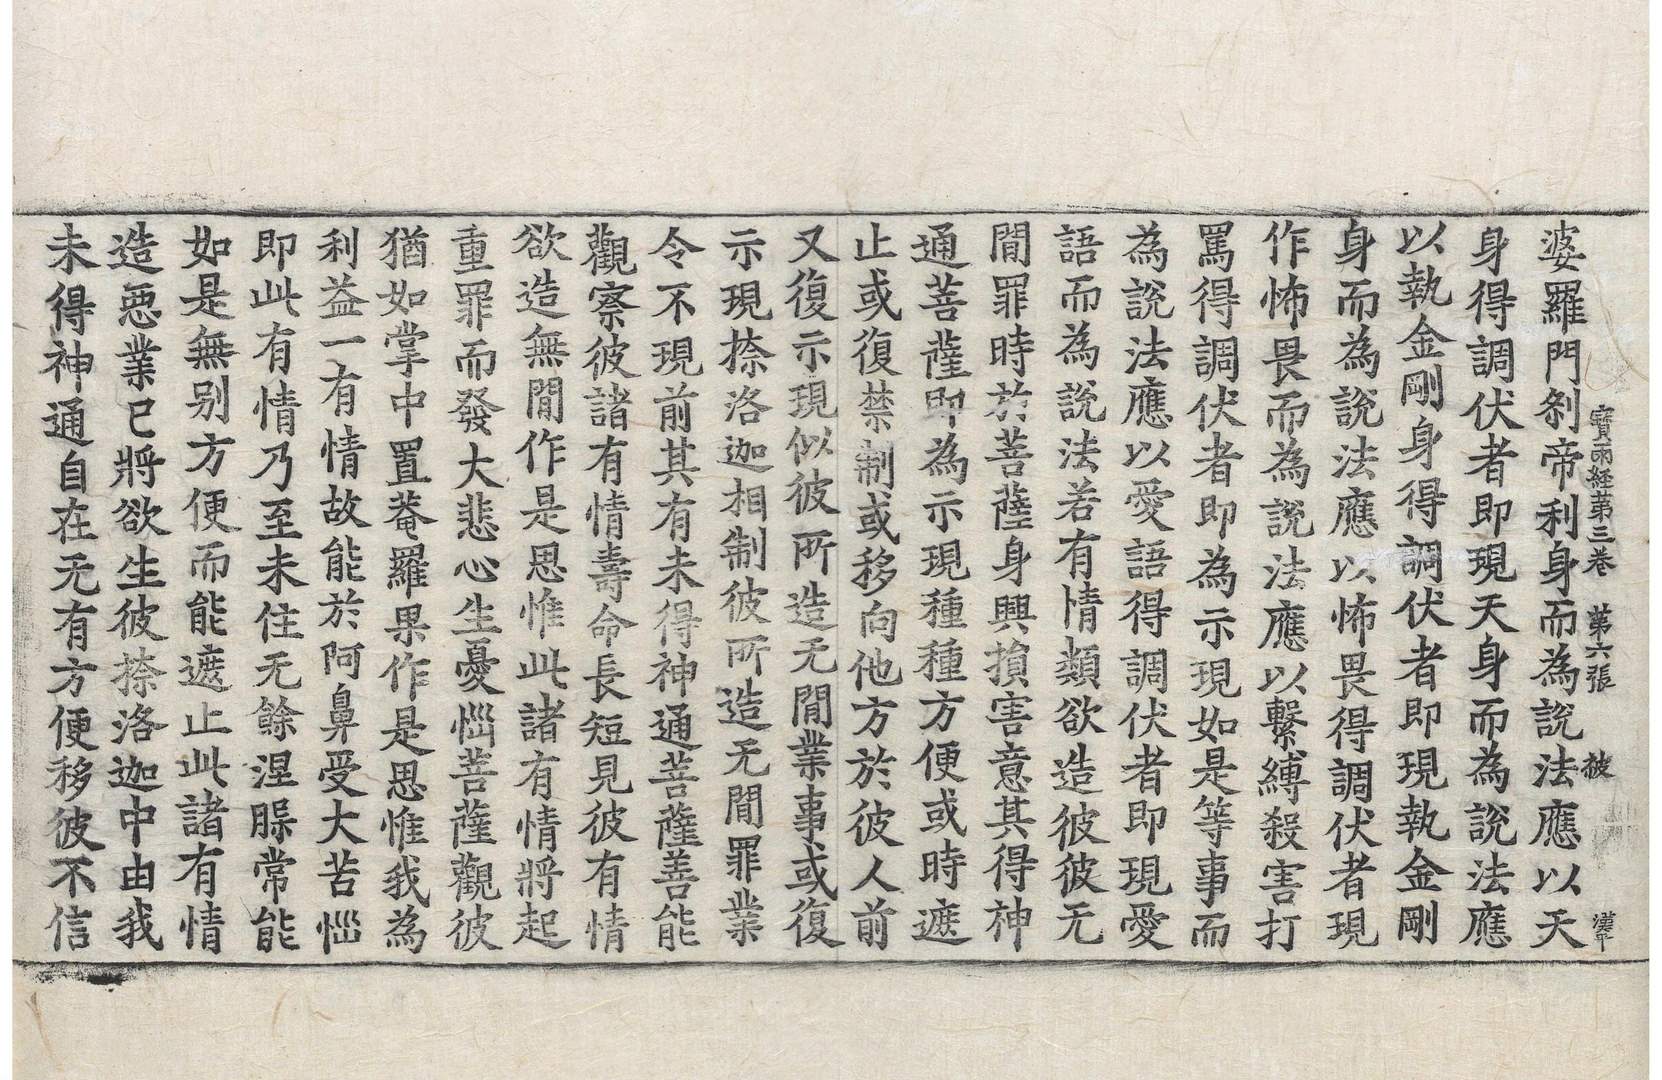 寶雨経苐三卷 苐六張 被 漢甲
婆羅門刹帝利身而為說法應以天
身得調伏者即現天身而為說法應
以執金剛身得調伏者即現執金剛
身而為說法應以怖畏得調伏者現
作怖畏而為說法應以繫縛殺害打
罵得調伏者即為示現如是等事而
為說法應以愛語得調伏者即現愛
語而為說法若有情類欲造彼彼无
閒罪時於菩薩身興損害意其得神
通菩薩即為示現種種方便或時遮
止或復禁制或移向他方於彼人前
又復示現似彼所造无閒業事或復
示現捺洛迦相制彼所造无閒罪業
令不現前其有未得神通菩薩善能
觀察彼諸有情壽命長短見彼有情
欲造無閒作是思惟此諸有情將起
重罪而發大悲心生憂惱菩薩觀彼
猶如掌中置菴羅果作是思惟我為
利益一有情故能於阿鼻受大苦惱
即此有情乃至未住无餘涅槃常能
如是無別方便而能遮止此諸有情
造惡業已將欲生彼捺洛迦中由我
未得神通自在无有方便移彼不信